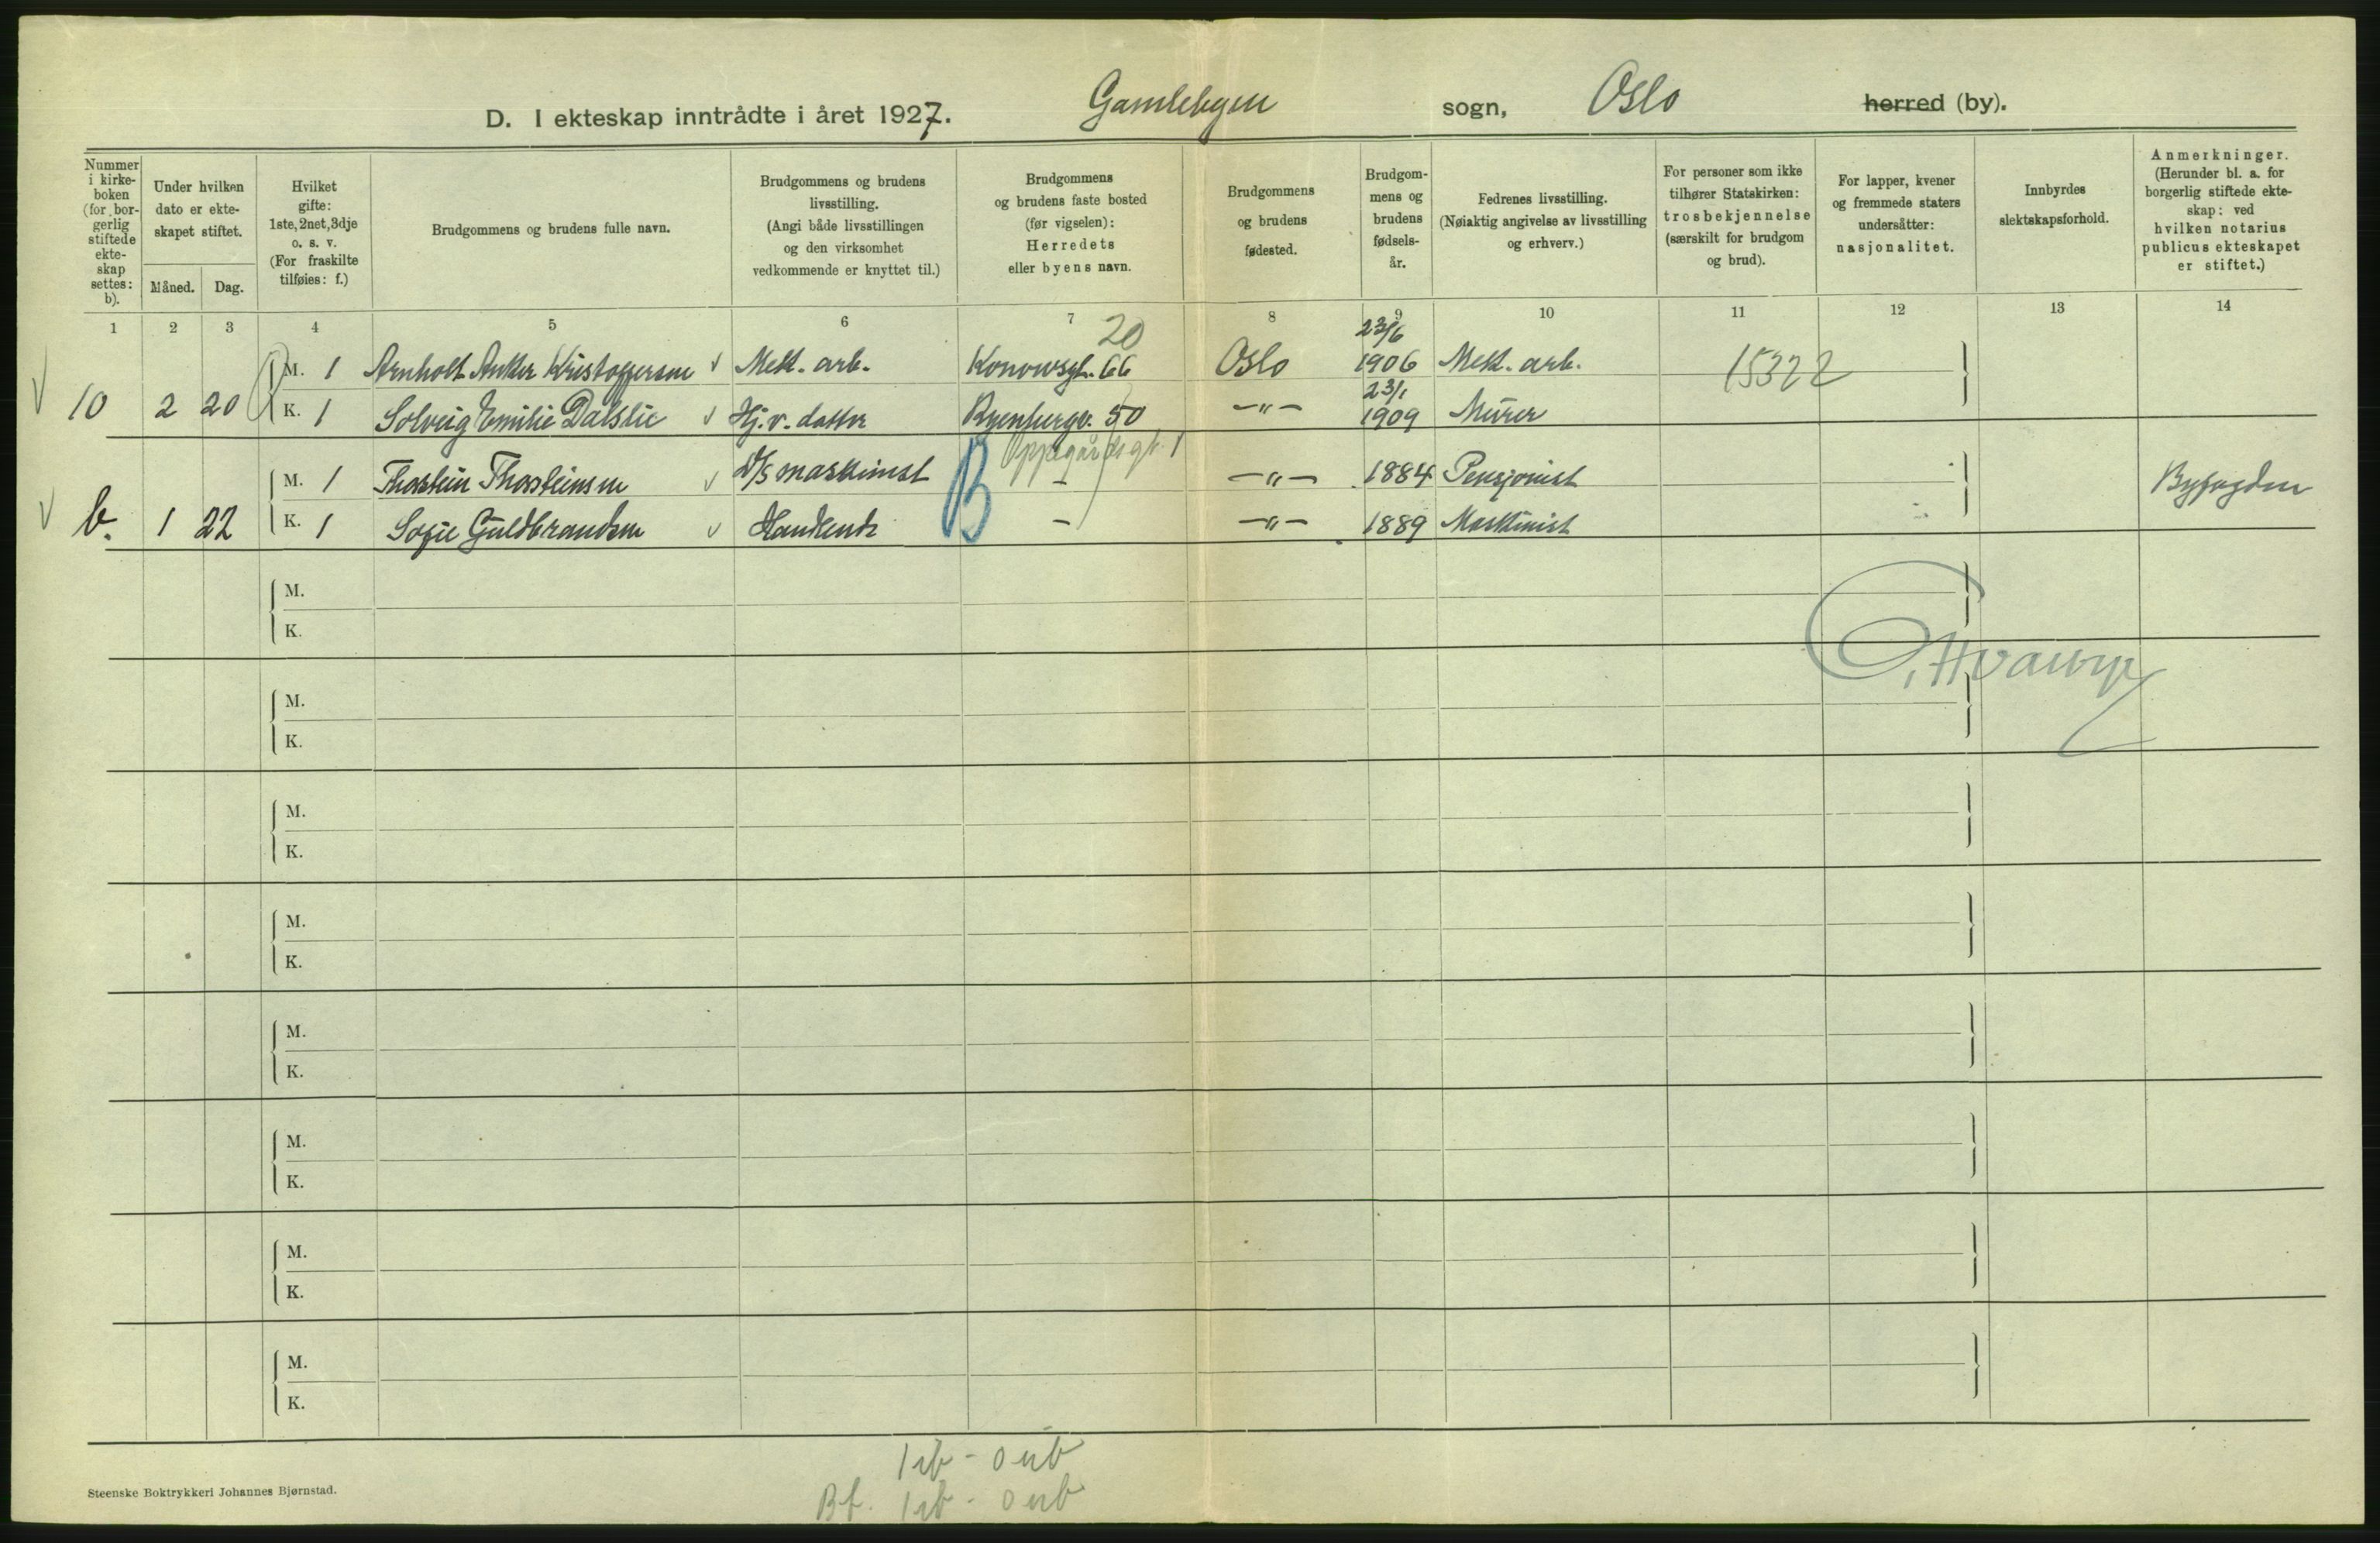 D. I ekteskap inntrådte i året 1927. Gamlebyen sogn, Oslo herred (by).
Nummer i kirkeboken (for borgerlig stiftede ekteskap settes: b).
Under hvilken dato er ekteskapet stiftet.
Måned. Dag.
Hvilket gifte: 1ste, 2net, 3dje o. s. v. (For fraskilte tilføies: f.)
Brudgommens og brudens fulle navn.
Brudgommens og brudens livsstilling. (Angi både livsstillingen og den virksomhet vedkommende er knyttet til.)
Brudgommens og brudens faste bosted (før vigselen): Herredets eller byens navn.
Brudgommens og brudens fødested.
Brudgommens og brudens fødselsår.
Fedrenes livsstilling. (Nøiaktig angivelse av livsstilling og erhverv.)
For personer som ikke tilhører Statskirken: trosbekjennelse (særskilt for brudgom og brud).
For lapper, kvener og fremmede staters undersåtter: nasjonalitet.
Innbyrdes slektskapsforhold.
Anmerkninger. (Herunder bl. a. for borgerlig stiftede ekteskap: ved hvilken notarius publicus ekteskapet er stiftet.)
1 2 3 4 5 6 7 8 9 10 11 12 13 14
20 23/6
M. 1 Arnholt Anker Kristoffersen Mek. arb. Konowsgt. 66 Oslo 1906 Mek. arb. 15322
23/1
10 2 20 K. 1 Solveig Emilie Dalslie Hj. v. datter Ryenbergv. 50 -"- 1909 Murer
Oppegårdsgt. 1
M. 1 Thorstein Thorsteinsen D/S maskinist - -"- 1884 Pensjonist Byfogden
B
b. 1 22 K. 1 Sofie Guldbrandsen - -"- 1889 Maskinist
M.
K.
M.
K.
M.
K.
M.
K.
M.
K.
M.
K.
M.
K.
M.
K.
1 ib - 0 uib
Bf. 1 ib - 0 uib
Steenske Boktrykkeri Johannes Bjørnstad.